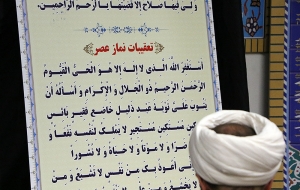 وَ لِي فِيهَا صَلَاحٌ إِلَّا قَضَيْتَهَا يَا أَرْحَمَ الرَّاحِمِينَ.
تعقیبات نماز عصر
أَسْتَغْفِرُ اللهَ الَّذِي لَا إِلَهَ إِلَّا هُوَ الْحَيُّ الْقَيُّومُ
الرَّحْمَنُ الرَّحِيمُ ذُو الْجَلَالِ وَ الْإِكْرَامِ وَ أَسْأَلُهُ أَنْ
يَتُوبَ عَلَيَّ تَوْبَةَ عَبْدٍ ذَلِيلٍ خَاضِعٍ فَقِيرٍ بَائِسٍ
مُسْتَكِينٍ مُسْتَجِيرٍ لَا يَمْلِكُ لِنَفْسِهِ نَفْعاً وَ
ضَرّاً وَ لَا مَوْتاً وَ لَا حَيَاةً وَ لَا نُشُوراً
إِنِّي أَعُوذُ بِكَ مِنْ نَفْسٍ لَا تَشْبَعُ وَ مِنْ
لَا يَخْشَعُ وَ مِنْ